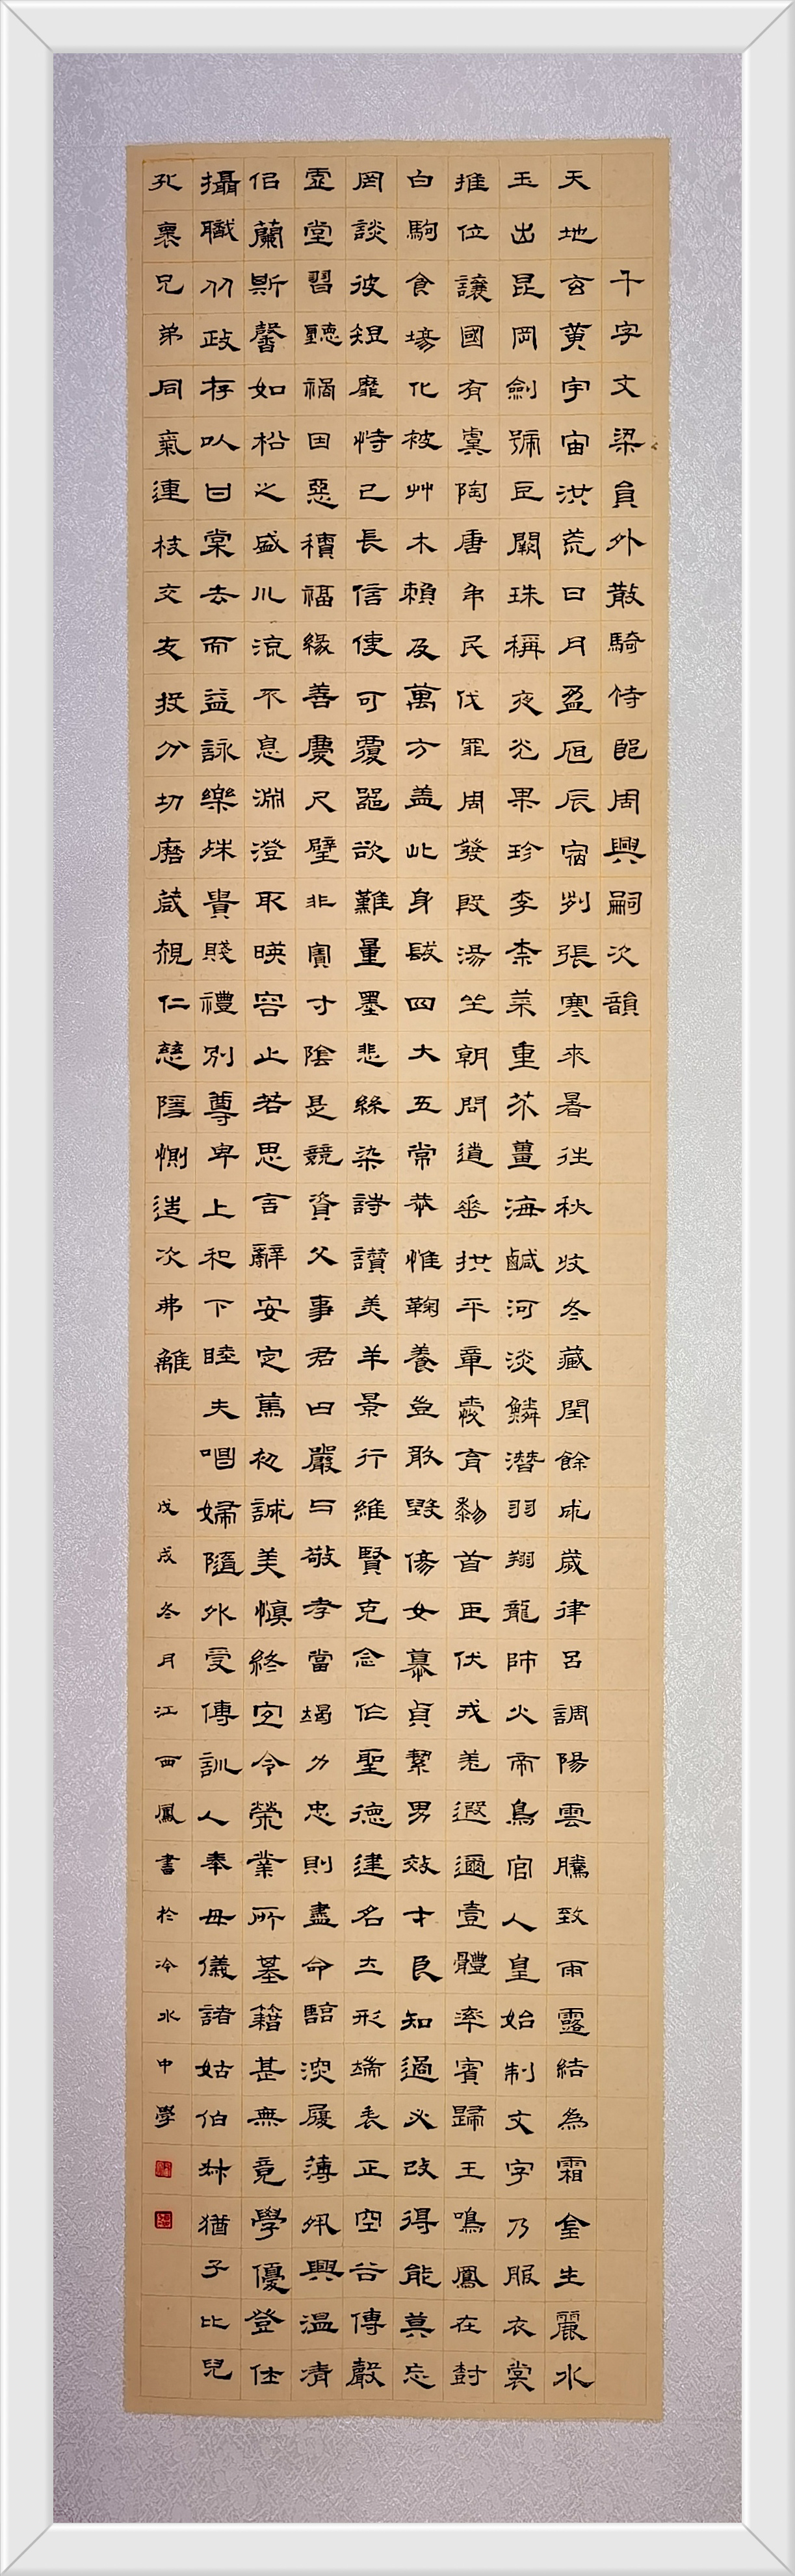 千字文梁員外散騎侍郎周興嗣次韻
天地玄黃宇宙洪荒日月盈昃辰宿列張寒來暑往秋收冬藏閏餘成歲律呂調陽雲騰致雨露結為霜金生麗水
玉出昆岡劍號巨闕珠稱夜光果珍李柰菜重芥薑海鹹河淡鱗潛羽翔龍師火帝鳥官人皇始制文字乃服衣裳
推位讓國有虞陶唐弔民伐罪周發殷湯坐朝問道垂拱平章愛育黎首臣伏戎羌遐邇壹體率賓歸王鳴鳳在尌
白駒食場化被艸木賴及萬方盖此身髮四大五常恭惟鞠養豈敢毀傷女慕貞絜男效才良知過必改得能莫忘
罔談彼短靡恃己長信使可覆器欲難量墨悲絲染詩讚羔羊景行維賢克念作聖德建名立形端表正空谷傳聲
虛堂習聽禍因惡積福緣善慶尺璧非寶寸陰是競資父事君曰嚴与敬孝當竭力忠則盡命臨深履薄夙興溫凊
佀蘭斯馨如松之盛川流不息淵澄取暎容止若思言辭安定篤初誠美慎終宜令榮業所基籍甚無竟學優登仕
攝職从政存以甘棠去而益詠樂殊貴賤禮別尊卑上和下睦夫唱婦隨外受傅訓入奉母儀諸姑伯叔猶子比兒
孔褱兄弟同氣連枝交友投分切磨箴規仁慈隱惻造次弗離
戊戌冬月江西鳳書於冷水中學